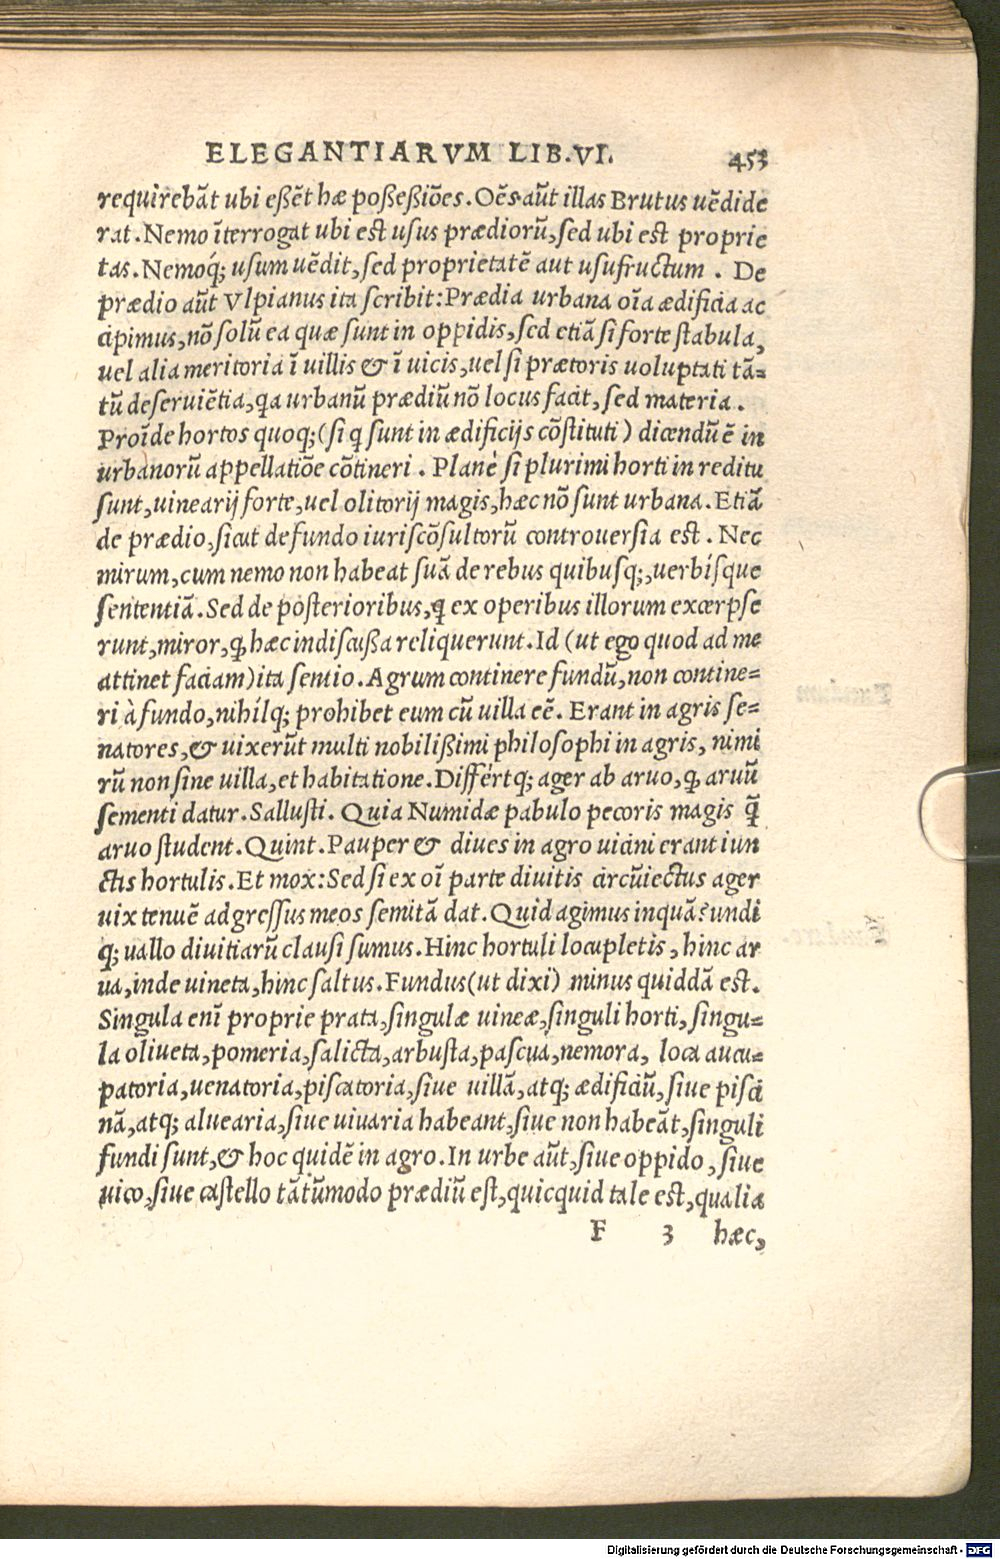 ELEGANTIARVM LIB.VI. 453
requirebāt ubi eßēt hæ poßeßiōes. Oēs aūt illas Brutus uēdide
rat. Nemo īterrogat ubi est usus prædiorū, sed ubi est proprie
tas. Nemoq́; usum uēdit, sed proprietatē aut usufructum . De
prædio aūt Vlpianus ita scribit: Prædia urbana oīa ædificia ac
cipimus, nō solū ea quæ sunt in oppidis, sed etiā si forte stabula,
uel alia meritoria ī uillis & ī uicis, uel si prætoris uoluptati tā=
tū deseruiētia, qa urbanū prædiū nō locus facit, sed materia .
Proīde hortos quoq; (si q sunt in ædificijs cōstituti ) dicendū ē in
urbanorū appellatiōe cōtineri . Planè si plurimi horti in reditu
sunt, uinearij forte, uel olitorij magis, hæc nō sunt urbana. Etiā
de prædio, sicut de fundo iuriscōsultorū controuersia est . Nec
mirum, cum nemo non habeat suā de rebus quibusq;, uerbísque
sententiā. Sed de posterioribus, ꝗ ex operibus illorum excerpse
runt, miror, ꝙ hæc indiscußa reliquerunt. Id (ut ego quod ad me
attinet faciam) ita sentio. Agrum continere fundū, non contine=
ri à fundo, nihílq; prohibet eum cū uilla eē. Erant in agris se=
natores, & uixerūt multi nobilißimi philosophi in agris, nimi
rū non sine uilla, et habitatione. Differtq; ager ab aruo, ꝙ aruū
sementi datur. Sallusti. Quia Numidæ pabulo pecoris magis q̄
aruo student. Quint. Pauper & diues in agro uicini erant iun
ctis hortulis. Et mox: Sed si ex oī parte diuitis circūiectus ager
uix tenuē adgressus meos semitā dat. Quid agimus inquā? undi
q; uallo diuitiarū clausi sumus. Hinc hortuli locupletis, hinc ar
ua, inde uineta, hinc saltus. Fundus (ut dixi) minus quiddā est.
Singula enī proprie prata, singulæ uineæ, singuli horti, singu=
la oliueta, pomeria, salicta, arbusta, pascua, nemora, loca aucu=
patoria, uenatoria, piscatoria, siue uillā, atq; ædificiū, siue pisci
nā, atq; aluearia, siue uiuaria habeant, siue non habeāt, singuli
fundi sunt, & hoc quidē in agro. In urbe aūt, siue oppido, siue
uico, siue castello tātūmodo prædiū est, quicquid tale est, qualia
F 3 hæc,
Digitalisierung gefördert durch die Deutsche Forschungsgemeinschaft - DFG